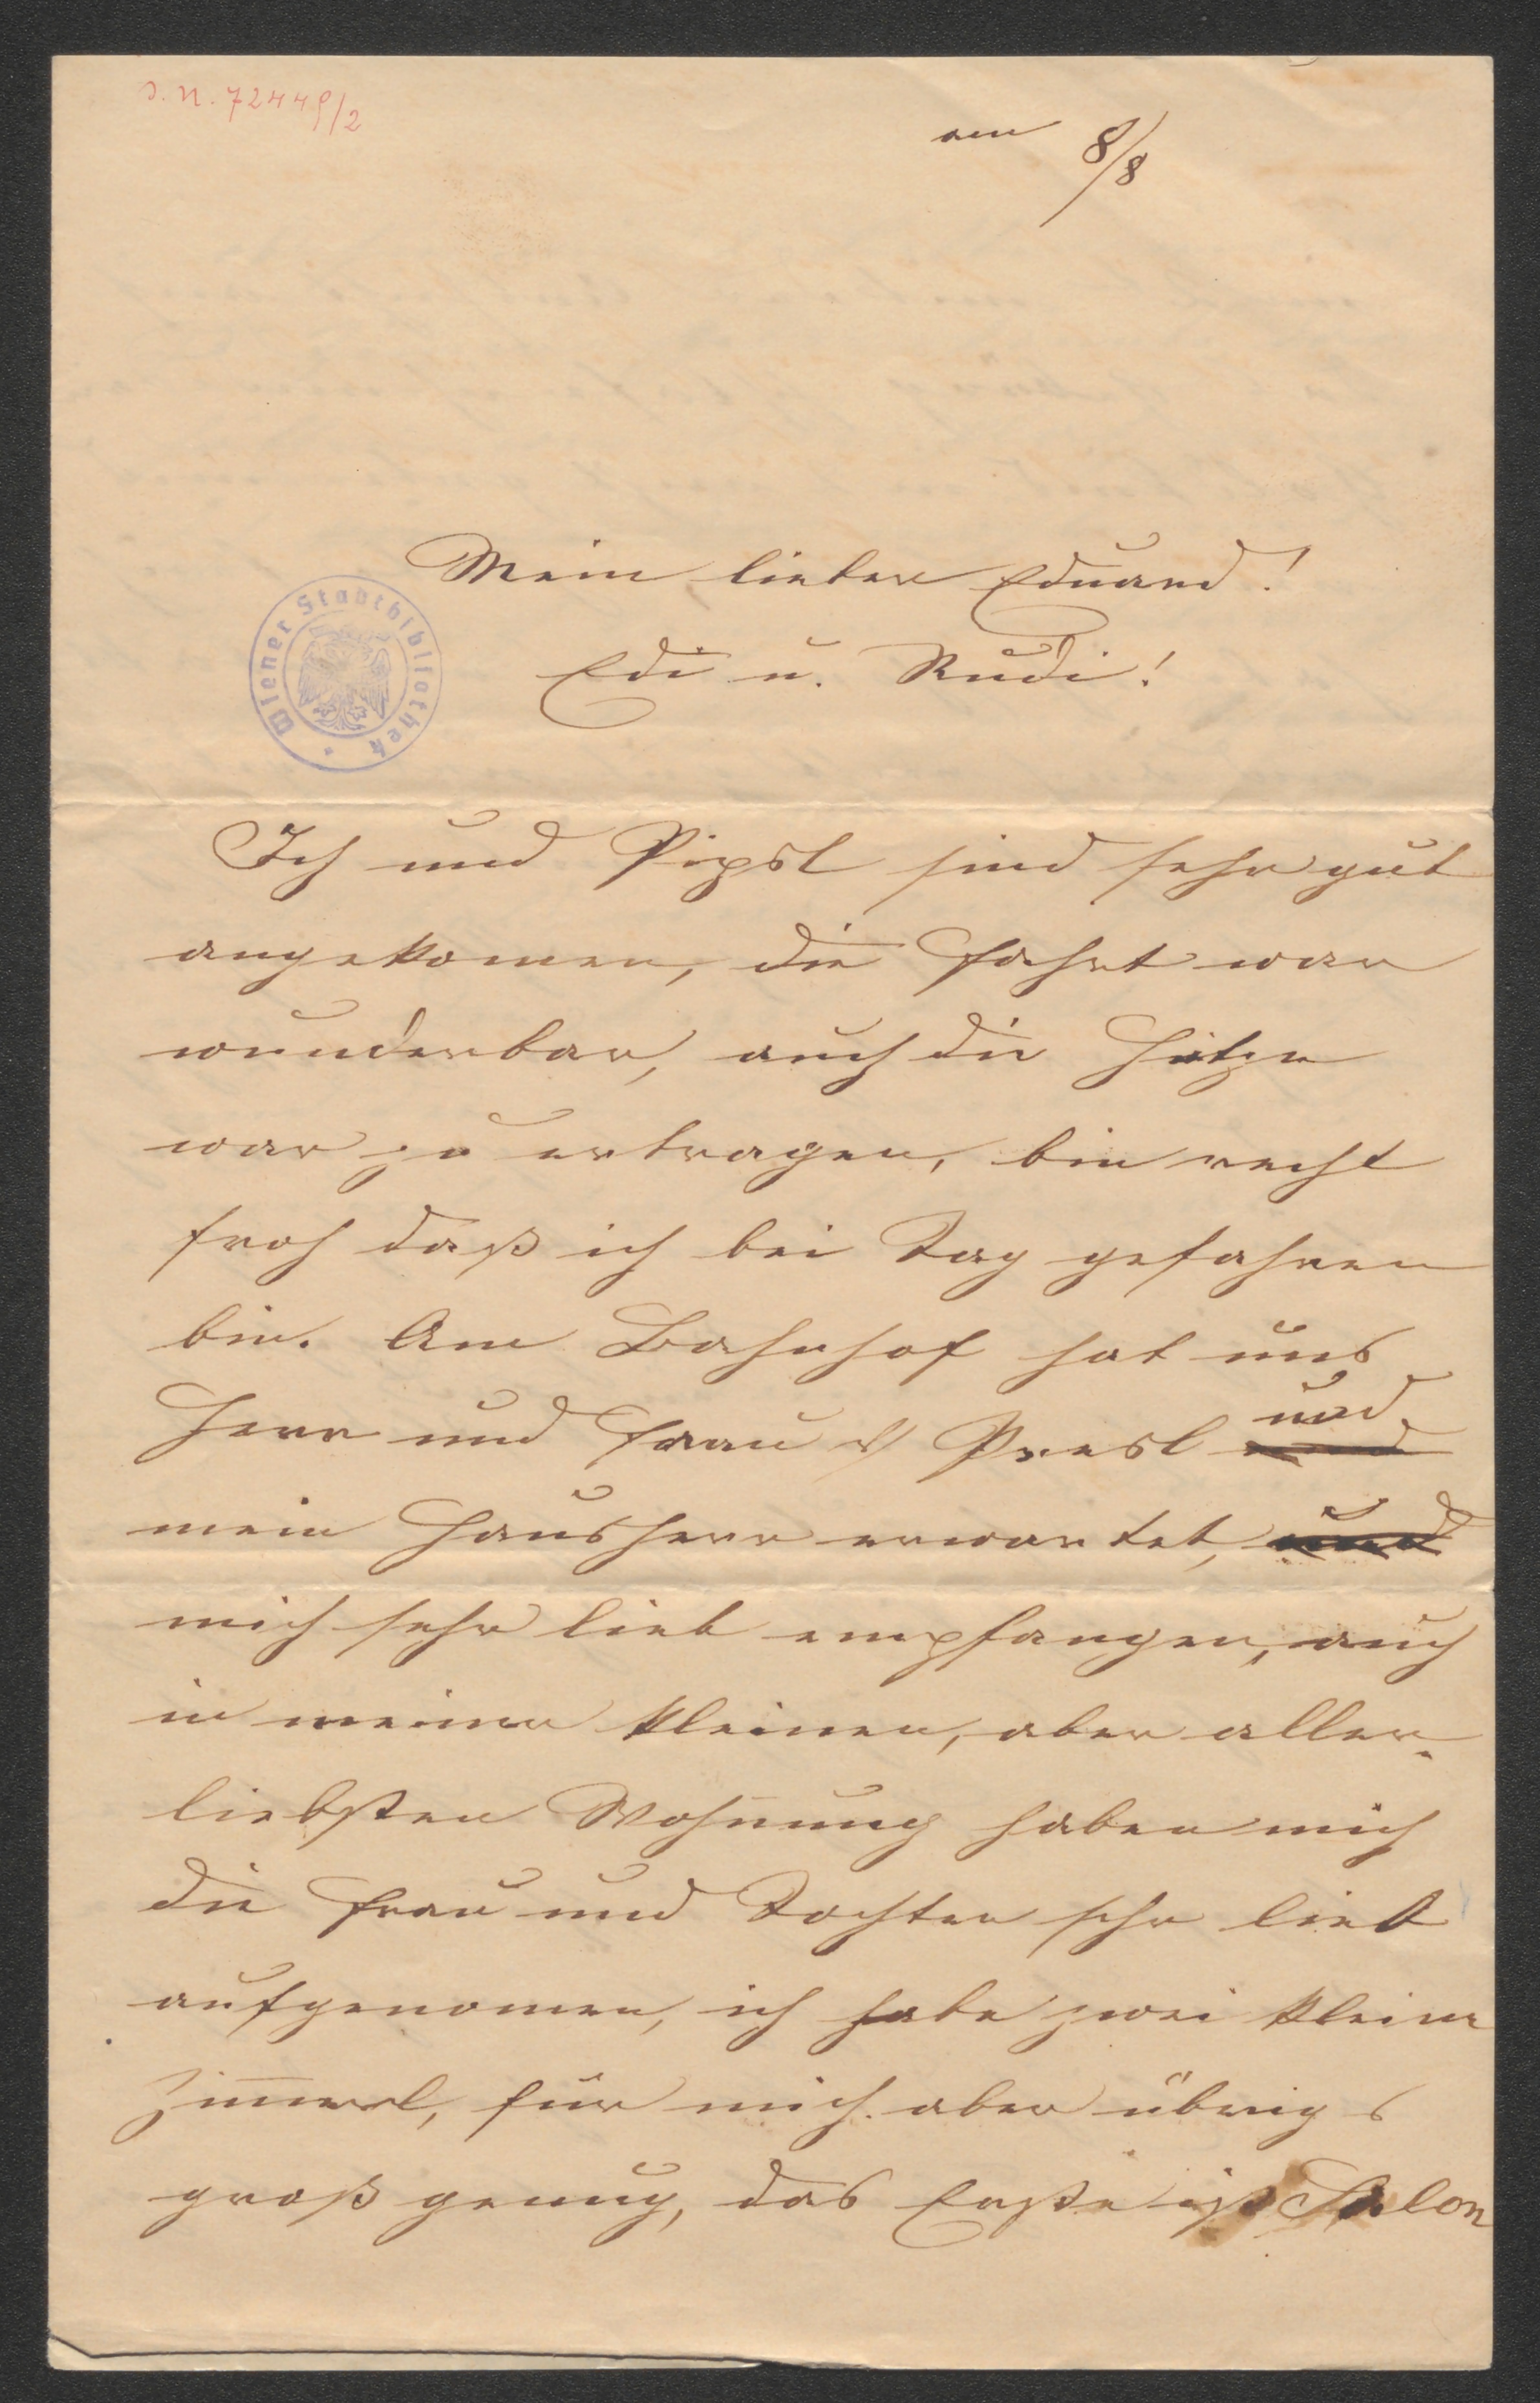 J. N. 72449/2
am 8/8
Mein lieber Eduard!
Edi u. Rudi!
Wiener Stadtbibliothek
Ich und Pipsl sind sehr gut
angekomen, die Fahrt war
wunderbar, auch die Hitze
war zu ertragen, bin recht
froh daß ich bei Tag gefahren
bin. Am Bahnhof hat uns
Herr und Frau Presl und
mein Hausherr erwartet, und
mich sehr lieb empfangen, auch
in meiner kleinen, aber aller-
liebsten Wohnung haben mich
die Frau und Tochter sehr lieb
aufgenomen, ich habe zwei kleine
Zimmerl, für mich aber übrigs
groß genug, das Erste ist Salon